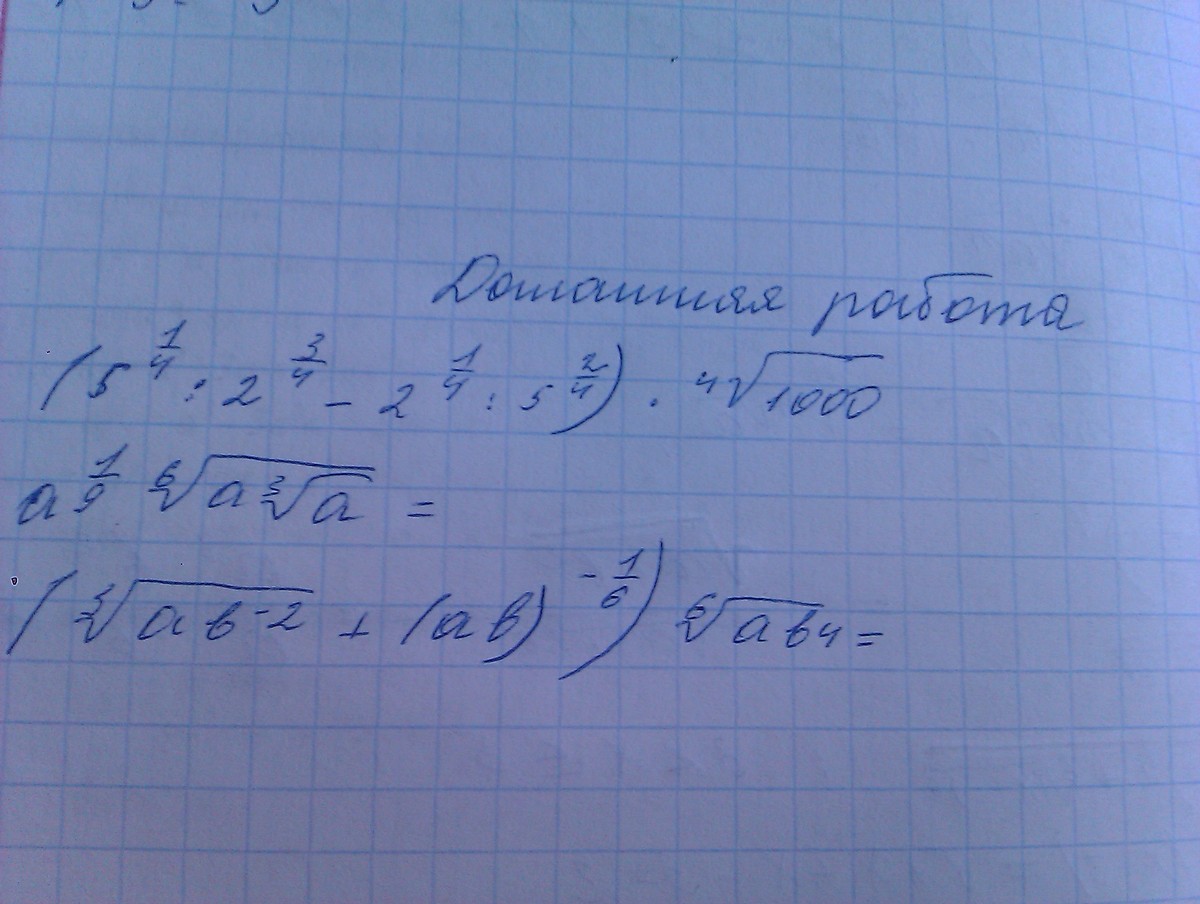 Домашняя работа
(5^{1/4} : 2^{3/4} - 2^{1/4} : 5^{2/4}) · ⁴√1000
a^{1/9} ⁶√(a ³√a) =
(³√(ab^{-2}) + (ab)^{-1/6}) ⁶√(ab4) =